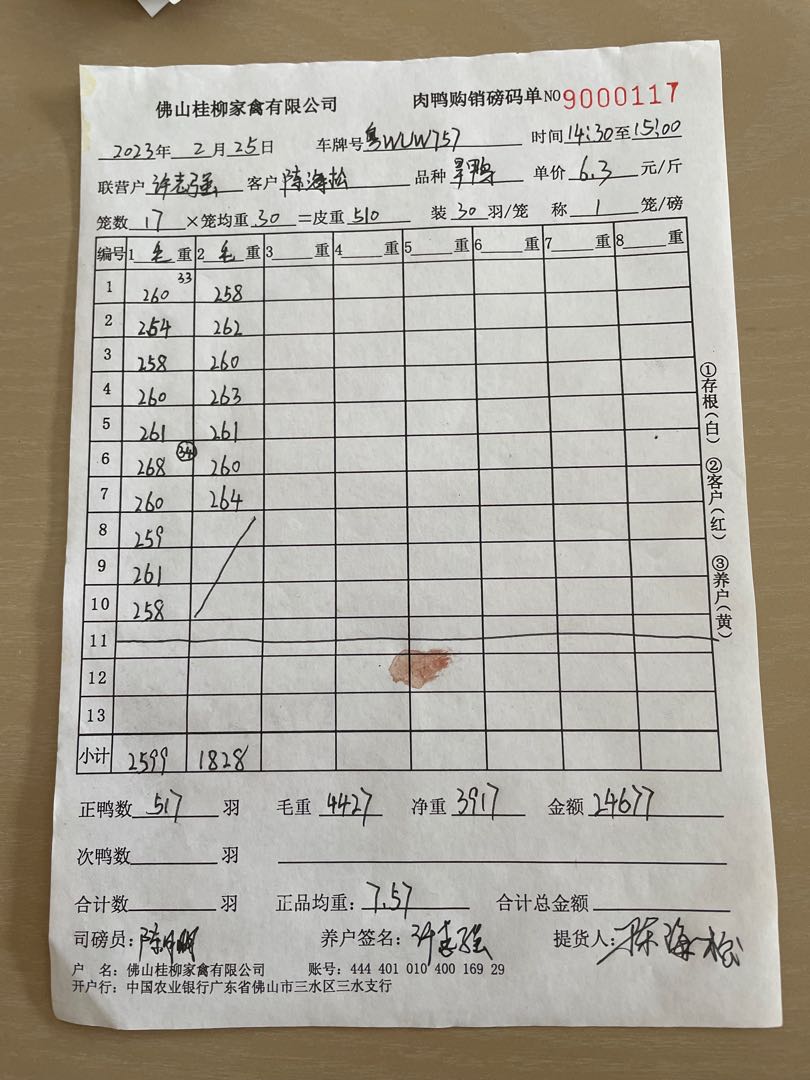 佛山桂柳家禽有限公司 肉鸭购销磅码单 NO 9000117
2023年 2月 25日 车牌号 粤WUW757 时间 14:30至15:00
联营户 许志强 客户 陈海松 品种 单价 6.3 元/斤
笼数 17 ×笼均重 30 =皮重 510 装 30 羽/笼 称 1 笼/磅
编号 1 毛 重 2 毛 重 3 重 4 重 5 重 6 重 7 重 8 重
1 260 33 258
2 254 262
3 258 260
4 260 263
5 261 261
6 268 34 260
7 260 264
8 259
9 261
10 258
11
12
13
小计 2599 1828
正鸭数 517 羽 毛重 4427 净重 3917 金额 24677
次鸭数 羽
合计数 羽 正品均重: 7.57 合计总金额
司磅员: 养户签名: 许志强 提货人: 陈海松
户 名: 佛山桂柳家禽有限公司 账号: 444 401 010 400 169 29
开户行: 中国农业银行广东省佛山市三水区三水支行
①存根(白) ②客户(红) ③养户(黄)